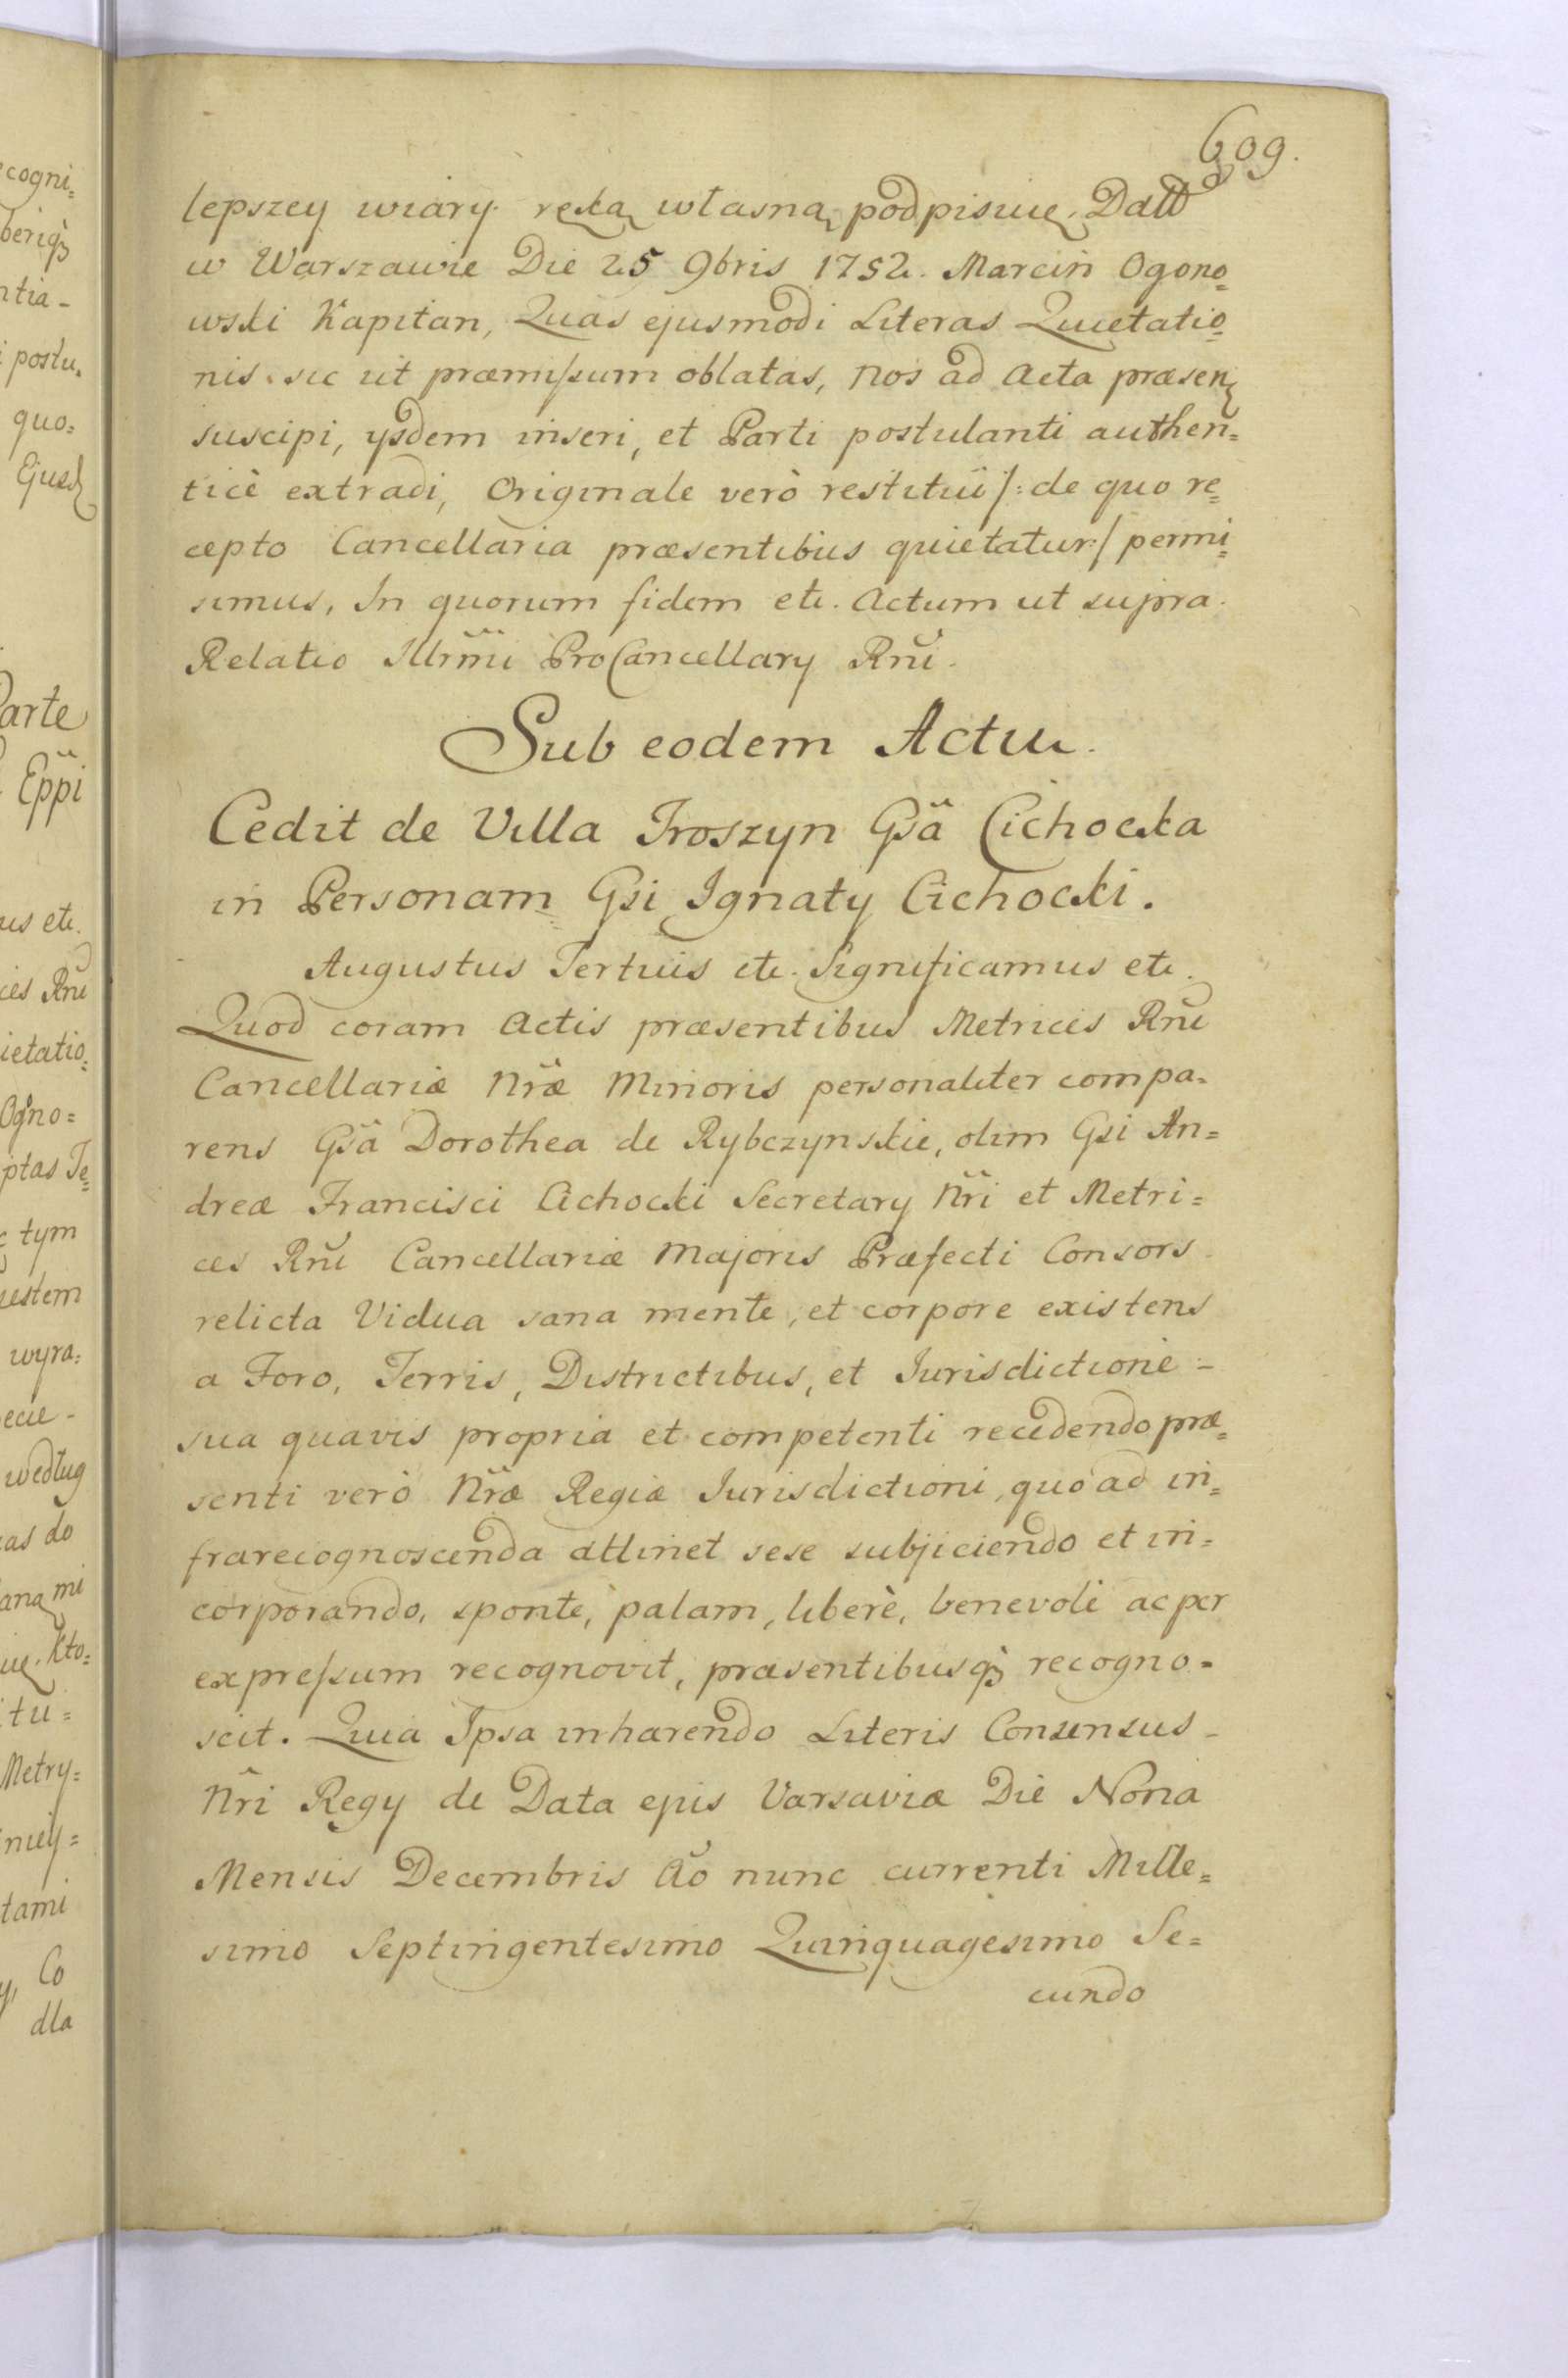 609.
lepszey wiary ręką własną podpisuię. Datt
w Warszawie Die 25 9bris 1752. Marcin Ogono=
wski Kapitan, Quas ejusmodi Literas Quietatio=
nis sic ut præmissum oblatas, Nos ad Acta præsen
suscipi, ysdem inseri, et Parti postulanti authen=
ticè extradi, Originale verò restitui /: de quo re=
cepto Cancellaria præsentibus quietatur :/ permi=
simus, In quorum fidem etc. Actum ut supra.
Relatio Illrmi ProCancellary Rnĩ.
Sub eodem Actu.
Cedit de Villa Troszyn Gsa Cichocka
in Personam Gsi Ignaty Cichocki.
Augustus Tertius etc. Significamus etc.
Quod coram Actis præsentibus Metrices Rni
Cancellariæ Nræ Minoris personaliter compa=
rens Gsa Dorothea de Rybczynskie, olim Gsi An=
dreæ Francisci Cichocki Secretary Nri et Metri=
ces Rni Cancellariæ Majoris Præfecti Consors
relicta Vidua sana mente, et corpore existens
a Foro, Terris, Districtibus, et Iurisdictione -
sua quavis propria et competenti recedendo præ=
senti verò Nræ Regiæ Iurisdictioni, quo ad in=
frarecognoscenda attinet sese subjiciendo et in=
corporando, sponte, palam, liberè, benevole ac per
expressum recognovit, præsentibusq recogno=
scit. Quia Ipsa inhærendo Literis Consensus -
Nri Regy de Data epis Varsaviæ Die Nona
Mensis Decembris Ao nunc currenti Mille=
simo Septingentesimo Quinquagesimo Se=
cundo
cogni=
ntia-
postu.
quo=
arte
Eppi
us etc.
ces Rni
ietatio=
Ogno=
ptas Te=
tym
istem
wyra=
ecie -
według
as do
aną mi
ię. Kto=
tu=
Metry=
niey=
tami
Co
dla